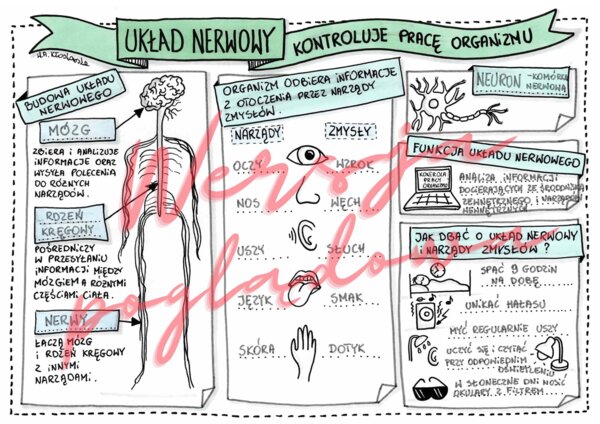 UKŁAD NERWOWY KONTROLUJE PRACĘ ORGANIZMU
BUDOWA UKŁADU
NERWOWEGO
MÓZG
ZBIERA I ANALIZUJE
INFORMACJE ORAZ
WYSYŁA POLECENIA
DO RÓŻNYCH
NARZĄDÓW.
RDZEŃ
KRĘGOWY
POŚREDNICZY
W PRZESYŁANIU
INFORMACJI MIĘDZY
MÓZGIEM A RÓŻNYMI
CZĘŚCIAMI CIAŁA.
NERWY
ŁĄCZĄ MÓZG
I RDZEŃ KRĘGOWY
Z INNYMI
NARZĄDAMI.
ORGANIZM ODBIERA INFORMACJE
Z OTOCZENIA PRZEZ NARZĄDY
ZMYSŁÓW.
NARZĄDY ZMYSŁY
OCZY WZROK
NOS WĘCH
USZY SŁUCH
JĘZYK SMAK
SKÓRA DOTYK
NEURON -KOMÓRKA
NERWOWA
FUNKCJA UKŁADU NERWOWEGO
KONTROLA
PRACY
ORGANIZMU
ANALIZA INFORMACJI
DOCIERAJĄCYCH ZE ŚRODOWISKA
ZEWNĘTRZNEGO I NARZĄDÓW
WEWNĘTRZNYCH
JAK DBAĆ O UKŁAD NERWOWY
I NARZĄDY ZMYSŁÓW?
SPAĆ 9 GODZIN
NA DOBĘ
UNIKAĆ HAŁASU
MYĆ REGULARNIE USZY
UCZYĆ SIĘ I CZYTAĆ
PRZY ODPOWIEDNIM
OŚWIETLENIU
W SŁONECZNE DNI NOSIĆ
OKULARY Z FILTREM
Wersja
poglądowa